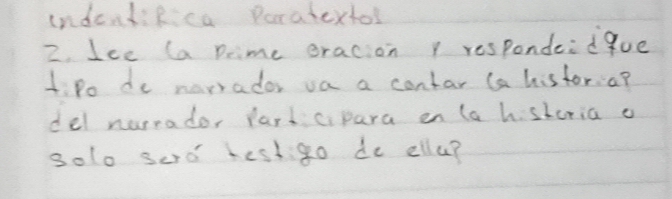 indentifica Paratextos
2. Lee la prime oración y responde: ¿Que
tipo de narrador va a contar la historia?
del narrador Participara en la historia o
solo será testigo de ella?